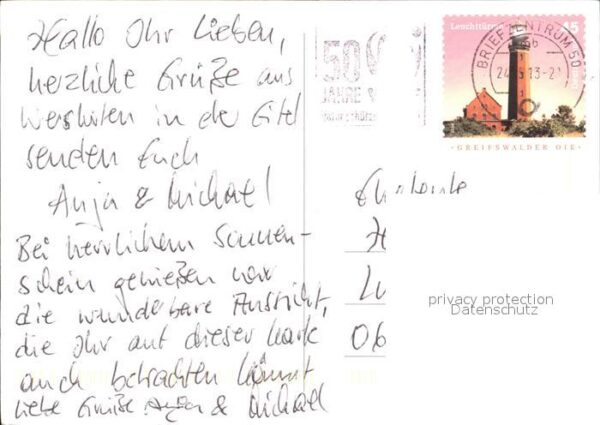 Hallo Ihr Lieben,
herzliche Grüße aus
in der Eifel
senden Euch
Anja & Michael
Bei herrlichem Sonnen-
schein genießen wir
die wunderbare Aussicht,
die Ihr auf dieser Karte
auch betrachten könnt
liebe Grüße Anja & Michael
50
JAHRE
Leuchttürme 45
BRIEFZENTRUM 50
·GREIFSWALDER OIE·
privacy protection
Datenschutz